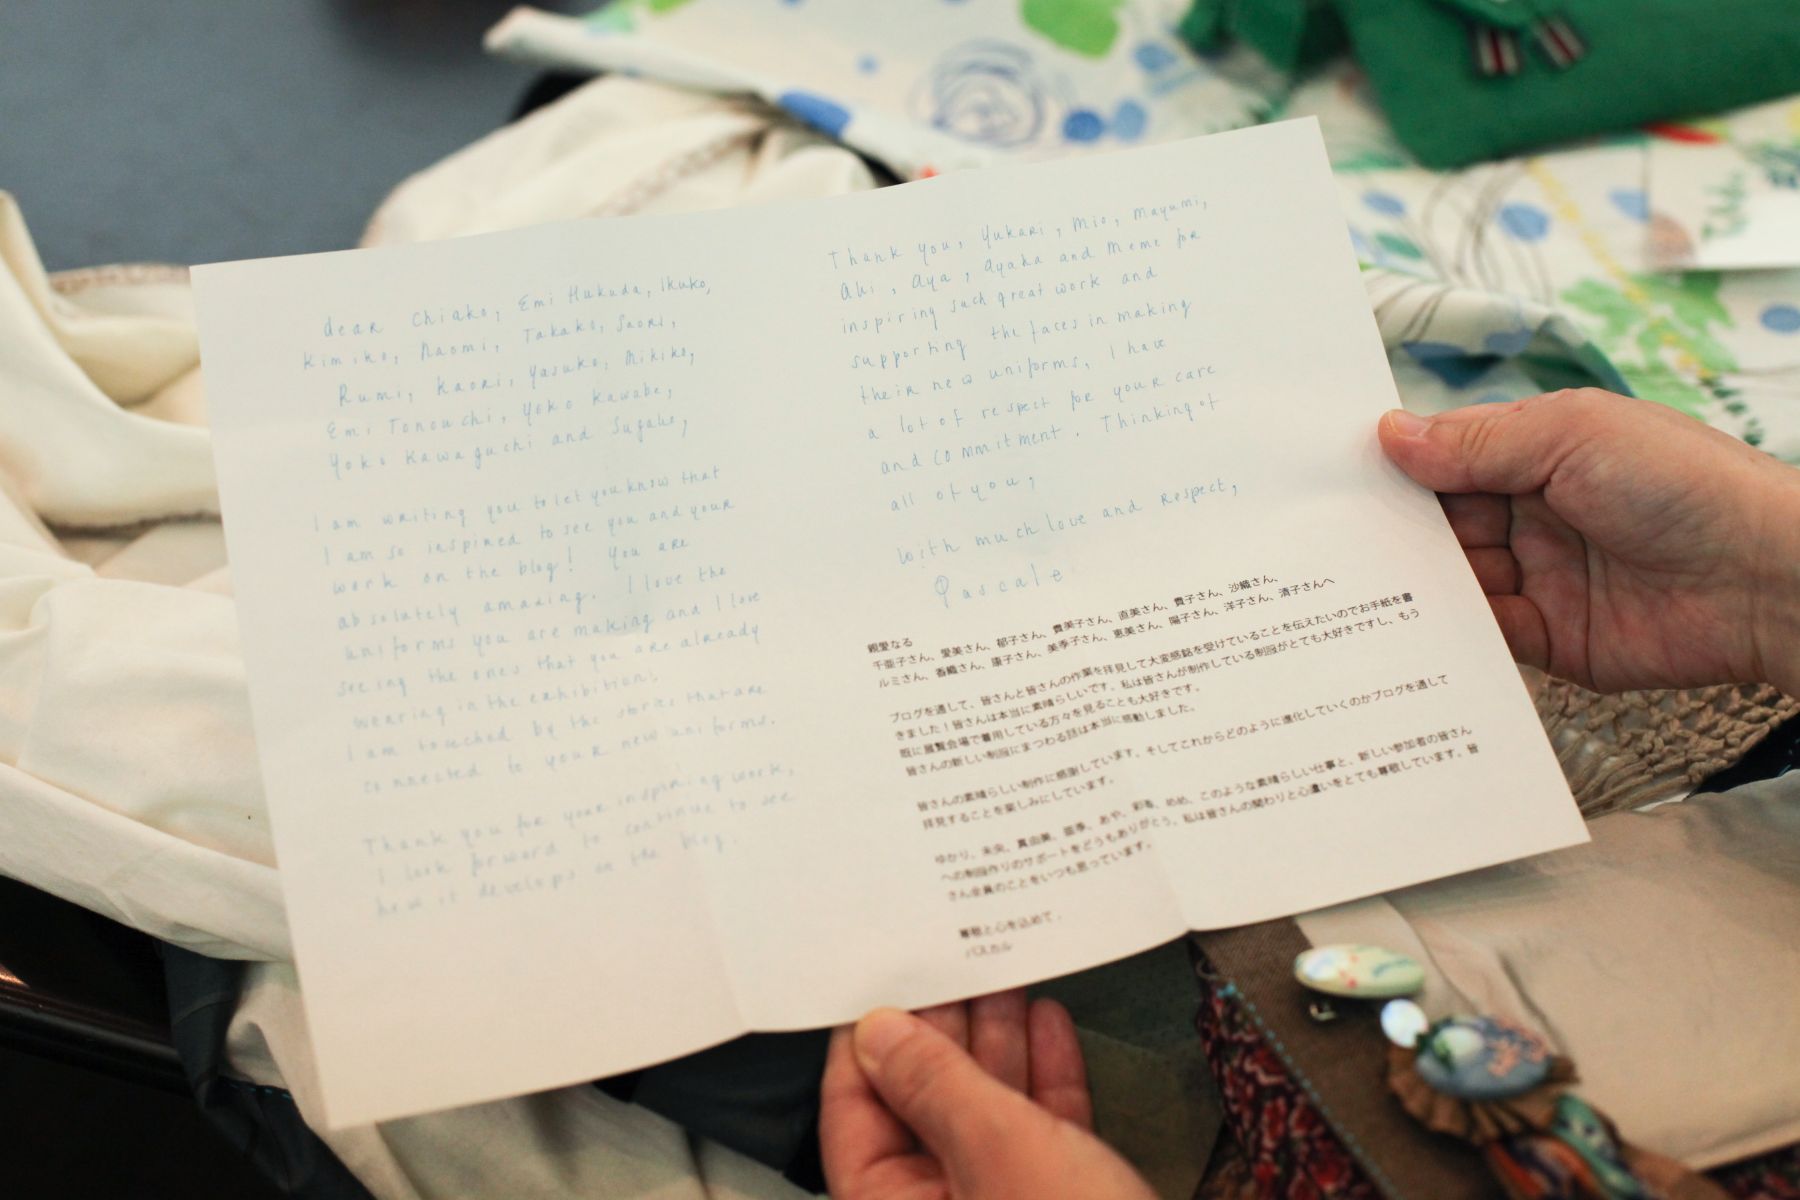 dear Chiako, Emi Hukuda, Ikuko,
Kimiko, Naomi, Takako, Saori,
Rumi, Kaori, Yasuko, Mikiko,
Emi Tonouchi, Yoko Kawabe,
Yoko Kawaguchi and Sugako,
I am writing you to let you know that
I am so inspired to see you and your
work on the blog! You are
absolutely amazing. I love the
uniforms you are making and I love
seeing the ones that you are already
wearing in the exhibition.
I am touched by the stories that are
connected to your new uniforms.
Thank you for your inspiring work,
I look forward to continue to see
how it develops on the blog.
Thank you, Yukari, Mio, Mayumi,
Aki, Aya, Ayaka and Meme for
inspiring such great work and
supporting the faces in making
their new uniforms, I have
a lot of respect for your care
and commitment. Thinking of
all of you,
with much love and respect,
Pascale
親愛なる
千亜子さん、愛美さん、郁子さん、貴美子さん、直美さん、貴子さん、沙織さん、
ルミさん、香織さん、康子さん、美季子さん、恵美さん、陽子さん、洋子さん、清子さんへ
ブログを通して、皆さんと皆さんの作業を拝見して大変感銘を受けていることを伝えたいのでお手紙を書
きました！皆さんは本当に素晴らしいです。私は皆さんが制作している制服がとても大好きですし、もう
既に展覧会場で着用している方々を見ることも大好きです。
皆さんの新しい制服にまつわる話は本当に感動しました。
皆さんの素晴らしい制作に感謝しています。そしてこれからどのように進化していくのかブログを通して
拝見することを楽しみにしています。
ゆかり、未央、真由美、亜季、あや、彩香、めめ、このような素晴らしい仕事と、新しい参加者の皆さん
への制服作りのサポートをどうもありがとう。私は皆さんの関わりと心遣いをとても尊敬しています。皆
さん全員のことをいつも思っています。
尊敬と心を込めて、
パスカル